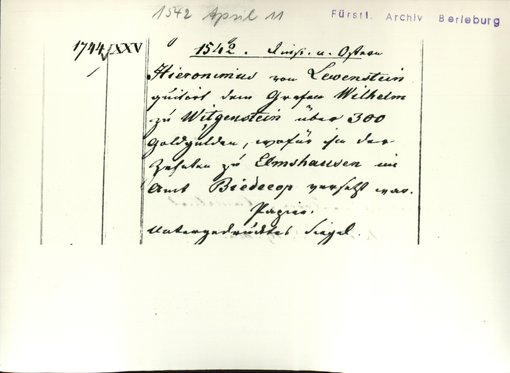 1542 April 11
Fürstl. Archiv Berleburg
1744 XXV
1542. Dinst. n. Ostern
Hieronimus von Lewenstein
quitirt dem Grafen Wilhelm
zu Witgenstein über 300
Goldgulden, wofür ihm der
Zehnten zu Elmshausen im
Amt Biedecop versetzt war.
Papier.
Untergedrucktes Siegel.